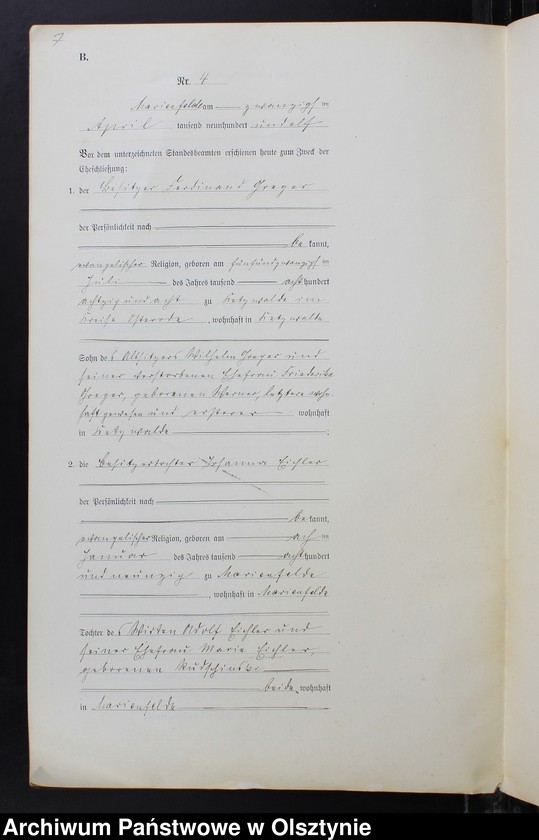 7
B.
Nr. 4
Marienfelde am zwanzigsten
April tausend neunhundert und elf
Vor dem unterzeichneten Standesbeamten erschienen heute zum Zweck der
Eheschließung:
1. der Besitzer Ferdinand Greger
der Persönlichkeit nach
be kannt,
evangelischer Religion, geboren am fünfundzwanzigsten
Juli des Jahres tausend acht hundert
achtzig und acht zu Ketzwalde im
Kreise Osterode, wohnhaft in Ketzwalde
Sohn des Altsitzers Wilhelm Greger und
seiner verstorbenen Ehefrau Friederike
Greger, geborenen Werner, letztere wohn-
haft gewesen und ersterer wohnhaft
in Ketzwalde.
2. die Besitzertochter Johanna Eichler
der Persönlichkeit nach
be kannt,
evangelischer Religion, geboren am
Januar des Jahres tausend acht hundert
und neunzig zu Marienfelde
, wohnhaft in Marienfelde
Tochter des Wirten Adolf Eichler und
seiner Ehefrau Marie Eichler,
geborenen
beide wohnhaft
in Marienfelde
Archiwum Państwowe w Olsztynie